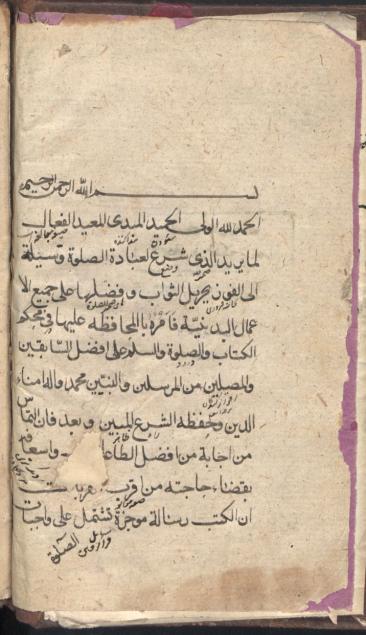 بسم الله الرحمن الرحيم
الحمد لله الولي الحميد المبدئ المعيد الفعال
لما يريد الذي شرع لعباده الصلوة وسيلة
الى الفوز بجزيل الثواب وفضلها على جميع الا
عمال البدنية فامره بالمحافظة عليها في محكم
الكتاب والصلوة والسلم على افضل السابقين
والمصلين من المرسلين والنبيين محمد واله امناء
الدين وحفظة الشرع المبين وبعد فان التماس
من اجابة من افضل الطاعا واسعافه
بقضاء حاجته من اقرب
ان اكتب رسالة موجزة تشتمل على واجبات
الصلوة